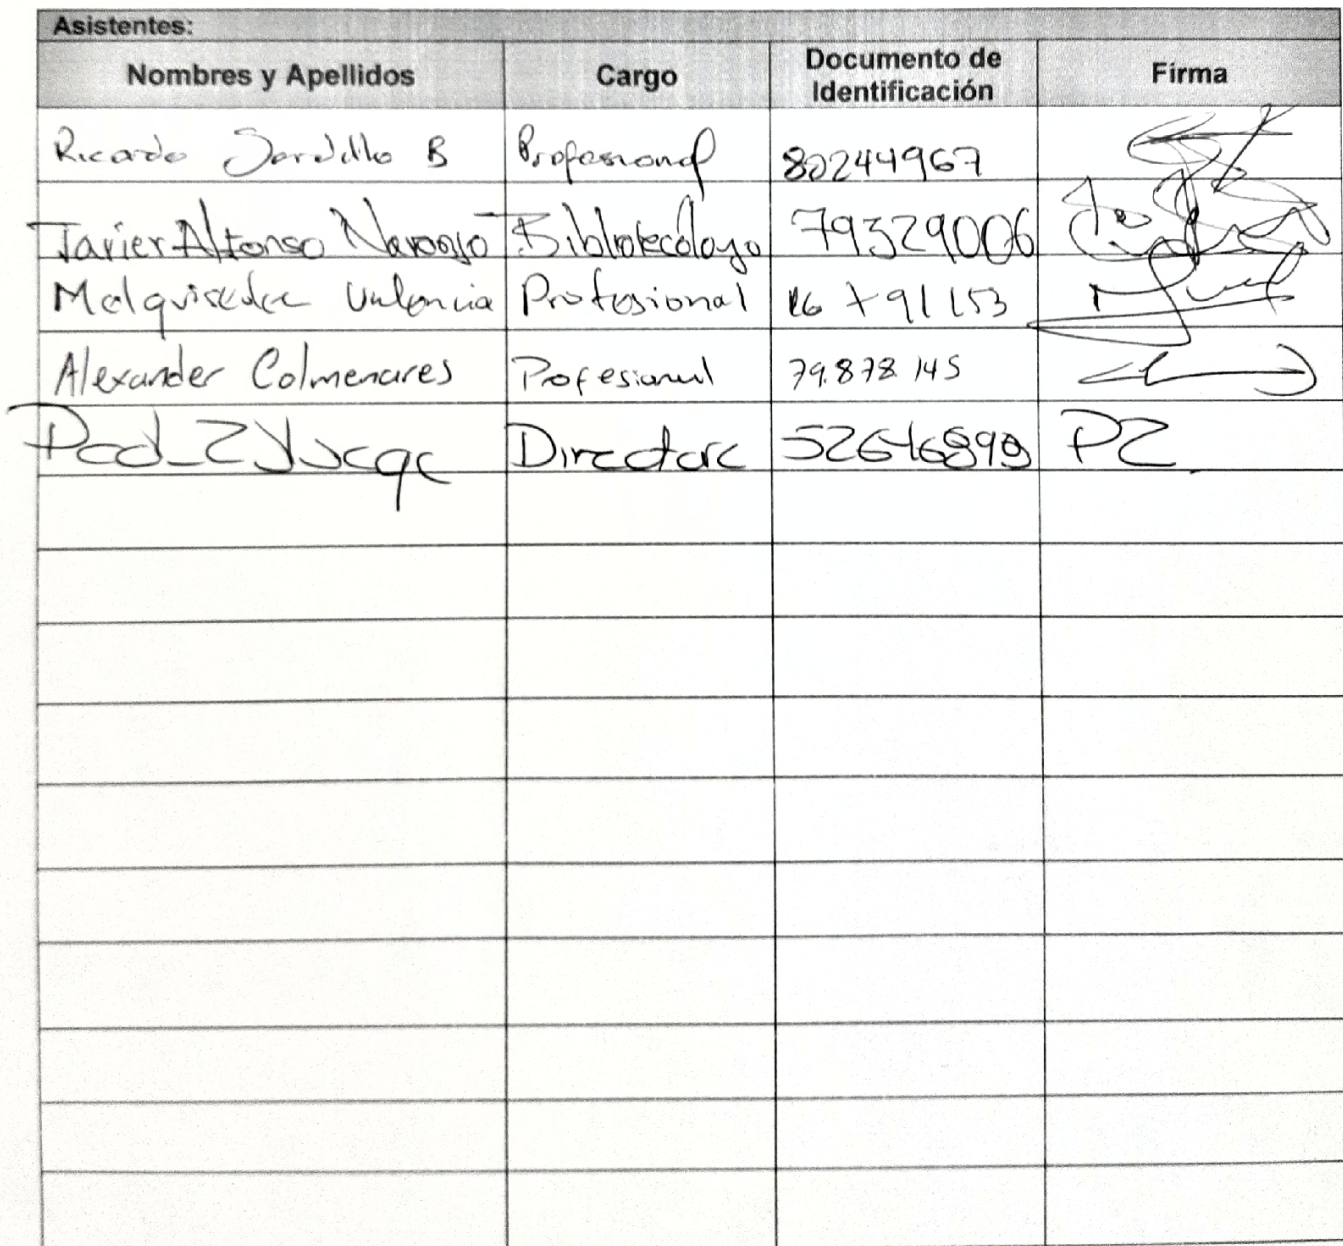 Asistentes:
Nombres y Apellidos Cargo Documento de Identificación Firma
Ricardo B Profesional 80244967
Javier Alfonso Naranjo Bibliotecólogo 79329006
Melquisedec Valencia Profesional 16791153
Alexander Colmenares Profesional 79.878.145
Directora PZ